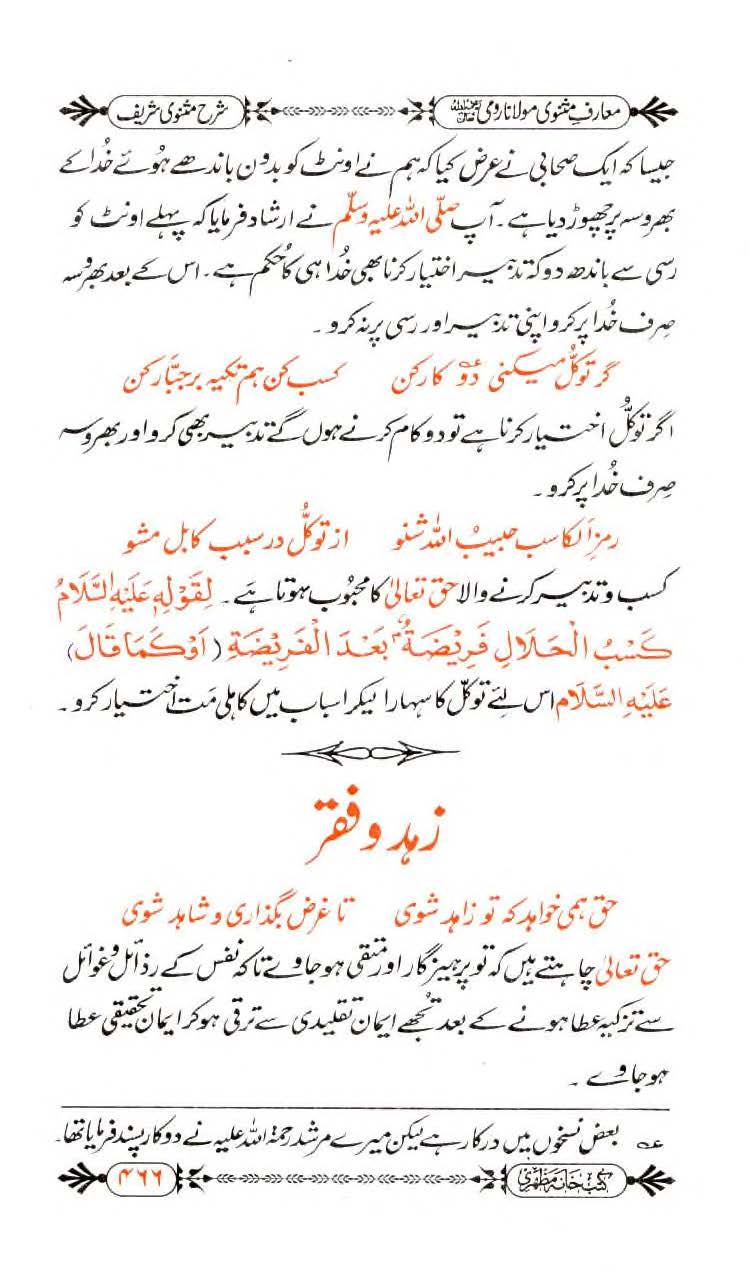 معارفِ مثنوی مولانا رومی رحمۃ اللہ تعالیٰ علیہ
شرح مثنوی شریف
جیسا کہ ایک صحابی نے عرض کیا کہ ہم نے اونٹ کو بدون باندھے ہوئے خُدا کے
بھروسہ پر چھوڑ دیا ہے ۔ آپ صلّی اللہ علیہ وسلّم نے ارشاد فرمایا کہ پہلے اونٹ کو
رسی سے باندھ دو کہ تدبیر اختیار کرنا بھی خُدا ہی کا حُکم ہے ۔ اس کے بعد بھروسہ
صِرف خُدا پر کرو اپنی تدبیر اور رسی پر نہ کرو ۔
گر توکّل میکنی دو؏ کار کن کسب کن ہم تکیہ بر جبّار کن
اگر توکُّل اختیار کرنا ہے تو دو کام کرنے ہوں گے تدبیر بھی کرو اور بھروسہ
صِرف خُدا پر کرو ۔
رمزِ اَلکاسب حبیبُ اللہ شنو از توکُّل در سبب کاہل مشو
کسب و تدبیر کرنے والا حق تعالیٰ کا محبُوب ہوتا ہے ۔ لِقَوْلِہٖ عَلَیْہِ السَّلَامُ
کَسْبُ الْحَلَالِ فَرِیْضَۃٌ بَعْدَ الْفَرِیْضَۃِ (اَوْ کَمَا قَالَ)
عَلَیْہِ السَّلَام اس لئے توکّل کا سہارا لیکر اسباب میں کاہلی مَت اختیار کرو ۔
زہد و فقر
حق ہمی خواہد کہ تو زاہد شوی تا غرض بگذاری و شاہد شوی
حق تعالیٰ چاہتے ہیں کہ تو پرہیزگار اور متقی ہو جاوے تاکہ نفس کے رذائل و غوائل
سے تزکیہ عطا ہونے کے بعد تُجھے ایمان تقلیدی سے ترقی ہو کر ایمان تحقیقی عطا
ہو جاوے ۔
؏ بعض نسخوں میں در کار ہے لیکن میرے مرشد رحمۃ اللہ علیہ نے دو کار پسند فرمایا تھا ۔
کتب خانہ مظہری
۴۶۶